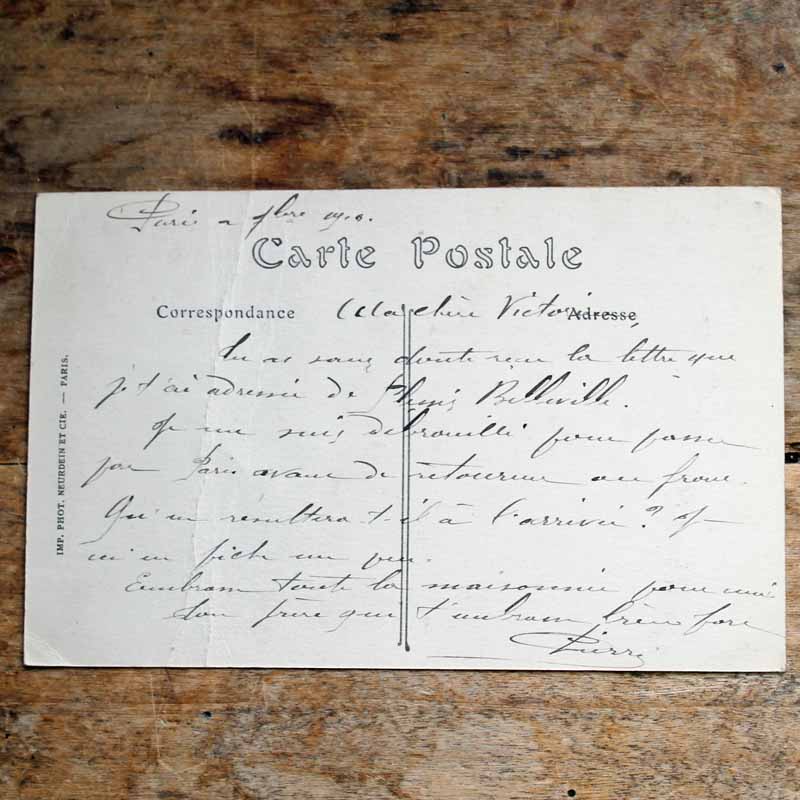 Paris
Carte Postale
Correspondance Ma chère Adresse
Tu as sans doute reçu la lettre que
je t'ai adressée de Belleville.
Je me suis débrouillé pour passer
par Paris avant de retourner au front.
Qu'en résultera-t-il à l'arrivée? Je
m'en fiche un peu.
Embrasse toute la maisonnée pour moi
Ton frère qui t'embrasse bien fort
Pierre
IMP. PHOT. NEURDEIN ET CIE. — PARIS.